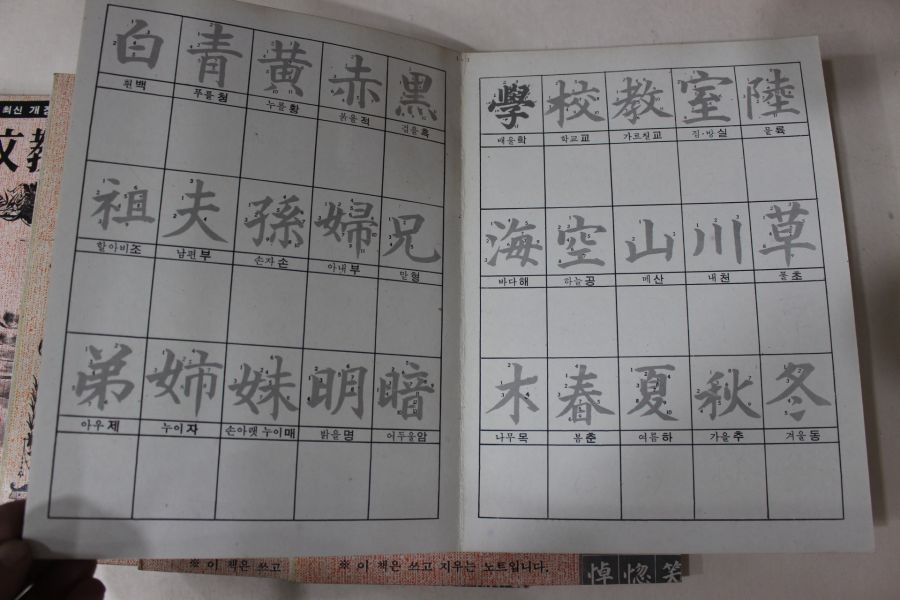 白 青 黃 赤 黑
흰백 푸를청 누를황 붉을적 검을흑
祖 夫 孫 婦 兄
할아비조 남편부 손자손 아내부 맏형
弟 姉 妹 明 暗
아우제 누이자 손아랫누이매 밝을명 어두울암
學 校 敎 室 陸
배울학 학교교 가르칠교 집·방실 뭍륙
海 空 山 川 草
바다해 하늘공 메산 내천 풀초
木 春 夏 秋 冬
나무목 봄춘 여름하 가을추 겨울동
최신 개정
※ 이 책은 쓰고
※ 이 책은 쓰고 지우는 노트입니다.
悼 惚 笑